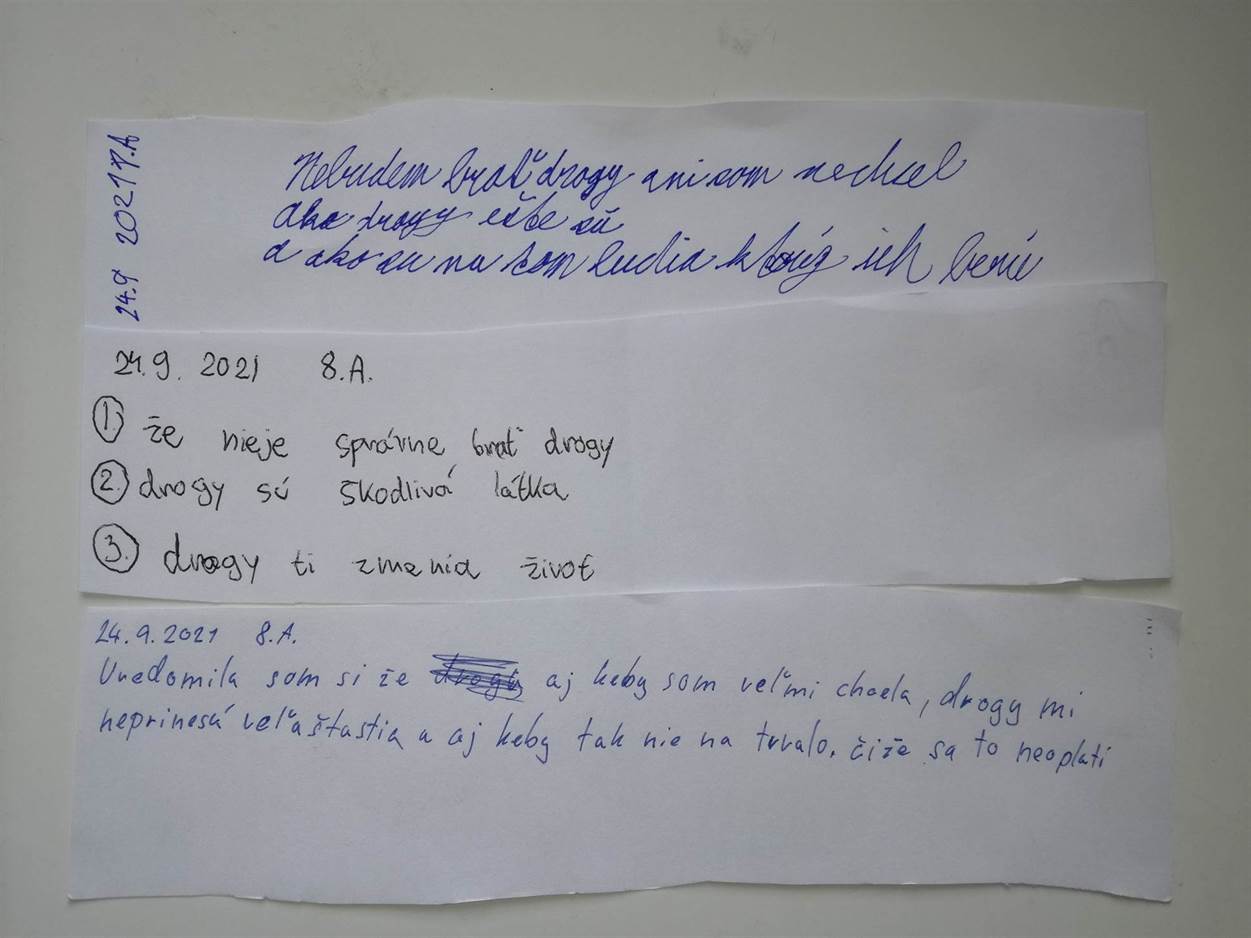 24.9 2021 7.A
Nebudem brať drogy ani som nechcel
ako drogy ešte sú
a ako su na tom ludia ktorý ich berú
24.9. 2021 8.A.
1. že nieje správne brať drogy
2. drogy sú škodlivá látka
3. drogy ti zmenia život
24.9.2021 8.A.
Uvedomila som si že drogy aj keby som veľmi chcela, drogy mi
neprinesú veľa štastia a aj keby tak nie na trvalo. čiže sa to neoplati